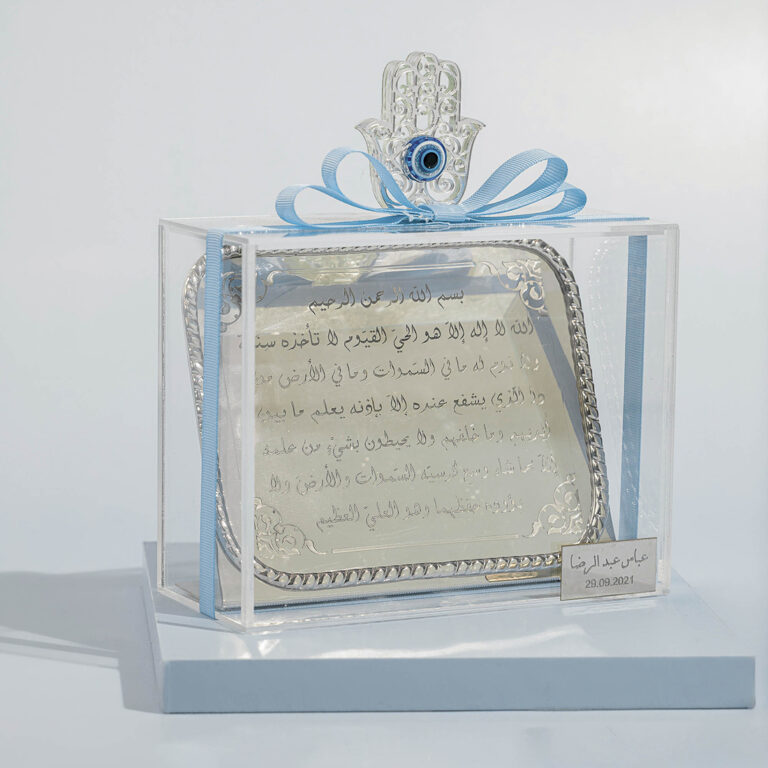 بسم الله الرحمن الرحيم
الله لا إله إلا هو الحيّ القيّوم لا تأخذه سنة
ولا نوم له ما في السّموات وما في الأرض من
ذا الّذي يشفع عنده إلاّ بإذنه يعلم ما بين
أيديهم وما خلفهم ولا يحيطون بشيءٍ من علمه
إلاّ بما شاء وسع كرسيّه السّموات والأرض ولا
يؤوده حفظهما وهو العليّ العظيم
عباس عبد الرضا
29.09.2021